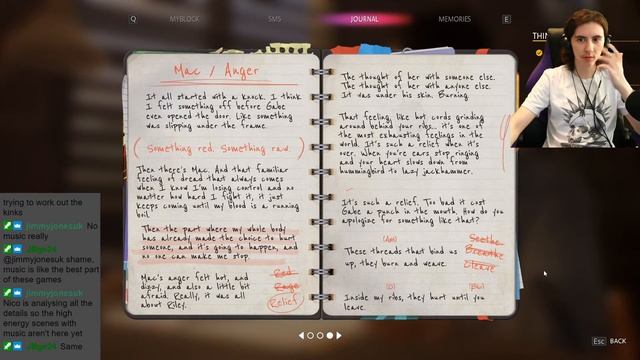 Q
MYBLOCK
SMS
JOURNAL
MEMORIES
E
THIN
Mac / Anger
It all started with a knock. I think
I felt something off before Gabe
even opened the door. Like something
was slipping under the frame.
(Something red. Something raw.)
Then there's Mac. And that familiar
feeling of dread that always comes
when I know I'm losing control and no
matter how hard I fight it, it just
keeps coming until my blood is a running
boil.
Then the part where my whole body
has already made the choice to hurt
someone, and it's going to happen, and
no one can make me stop.
Mac's anger felt hot, and
dizzy, and also a little bit
afraid. Really, it was all
about Riley.
Red
Rage
Relief
The thought of her with someone else.
The thought of her with anyone else.
It was under his skin. Burning.
That feeling, like hot cords grinding
around behind your ribs... it's one of
the most exhausting feelings in the
world. It's such a relief when it's
over. When you're ears stop ringing
and your heart slows down from
hummingbird to lazy jackhammer.
It's such a relief. Too bad it cost
Gabe a punch in the mouth. How do you
apologize for something like that?
(Am)
These threads that bind us
up, they burn and weave.
Seethe
Breathe
Cleave
Inside my ribs, they hurt until you
leave.
trying to work out the
kinks
jimmyjonesuk No
music really
JBgr24
@jimmyjonesuk shame,
music is like the best part
of these games
jimmyjonesuk
Nico is analysing all the
details so the high
energy scenes with
music aren't here yet
JBgr24 Same
Esc BACK